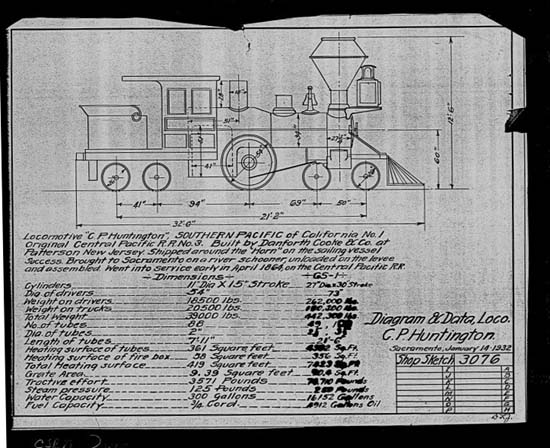 12'-6"
60"
51"
41"
54"
41"
94"
69"
50"
21'-2"
32'-6"
Locomotive "C.P. Huntington". SOUTHERN PACIFIC of California No. 1
Original Central Pacific R.R. No. 3. Built by Danforth Cooke & Co. at
Patterson New Jersey. Shipped around the "Horn" on the sailing vessel
Success. Brought to Sacramento on a river schooner unloaded on the levee
and assembled. Went into service early in April 1864, on the Central Pacific R.R.
Dimensions GS-1
Cylinders 11" Dia X 15" Stroke 27" Dia x 30 Stroke
Dia of drivers 54" 73"
Weight on drivers 18500 lbs. 262,000 lbs.
Weight on trucks 20500 lbs.
Total Weight 39000 lbs. lbs.
No. of tubes 88
Dia. of tubes 2"
Length of tubes 7'-11"
Heating surface of tubes 361 Square feet Sq. Ft.
Heating surface of fire box 58 Square feet 350 Sq. Ft.
Total Heating surface 419 Square feet
Grate Area 9.39 Square feet Sq. Ft.
Tractive effort 3571 Pounds Pounds
Steam pressure 125 Pounds Pounds
Water Capacity 300 Gallons 16152 Gallons
Fuel Capacity 3/4 Cord 4912 Gallons Oil
Diagram & Data, Loco.
C.P. Huntington
Sacramento, January 14-1932
Shop Sketch 3076